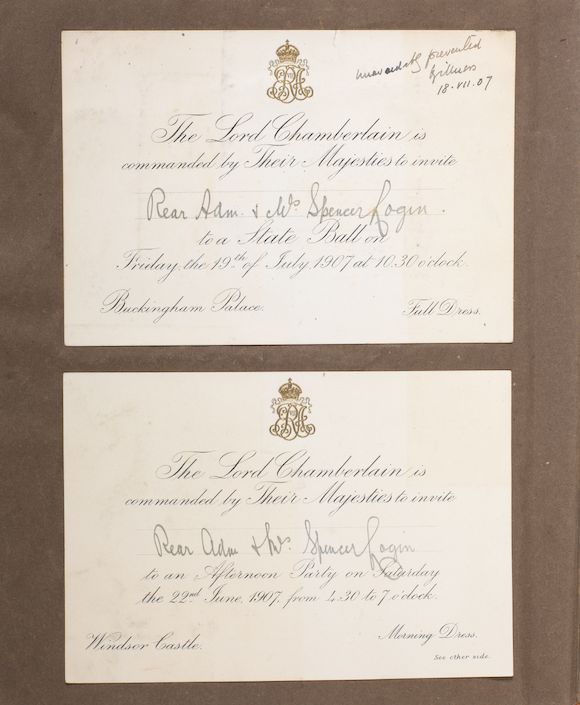 unavoidably prevented
illness
18.VII.07
The Lord Chamberlain is
commanded by Their Majesties to invite
Rear Adm. & Mrs. Spencer Login.
to a State Ball on
Friday, the 19th of July 1907 at 10.30 o'clock.
Buckingham Palace.
Full Dress.
The Lord Chamberlain is
commanded by Their Majesties to invite
Rear Adm & Mrs. Spencer Login
to an Afternoon Party on Saturday
the 22nd June, 1907, from 4.30 to 7 o'clock.
Windsor Castle.
Morning Dress.
See other side.